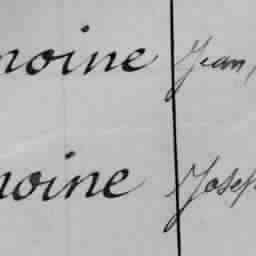 moine Jean,
moine Joseph